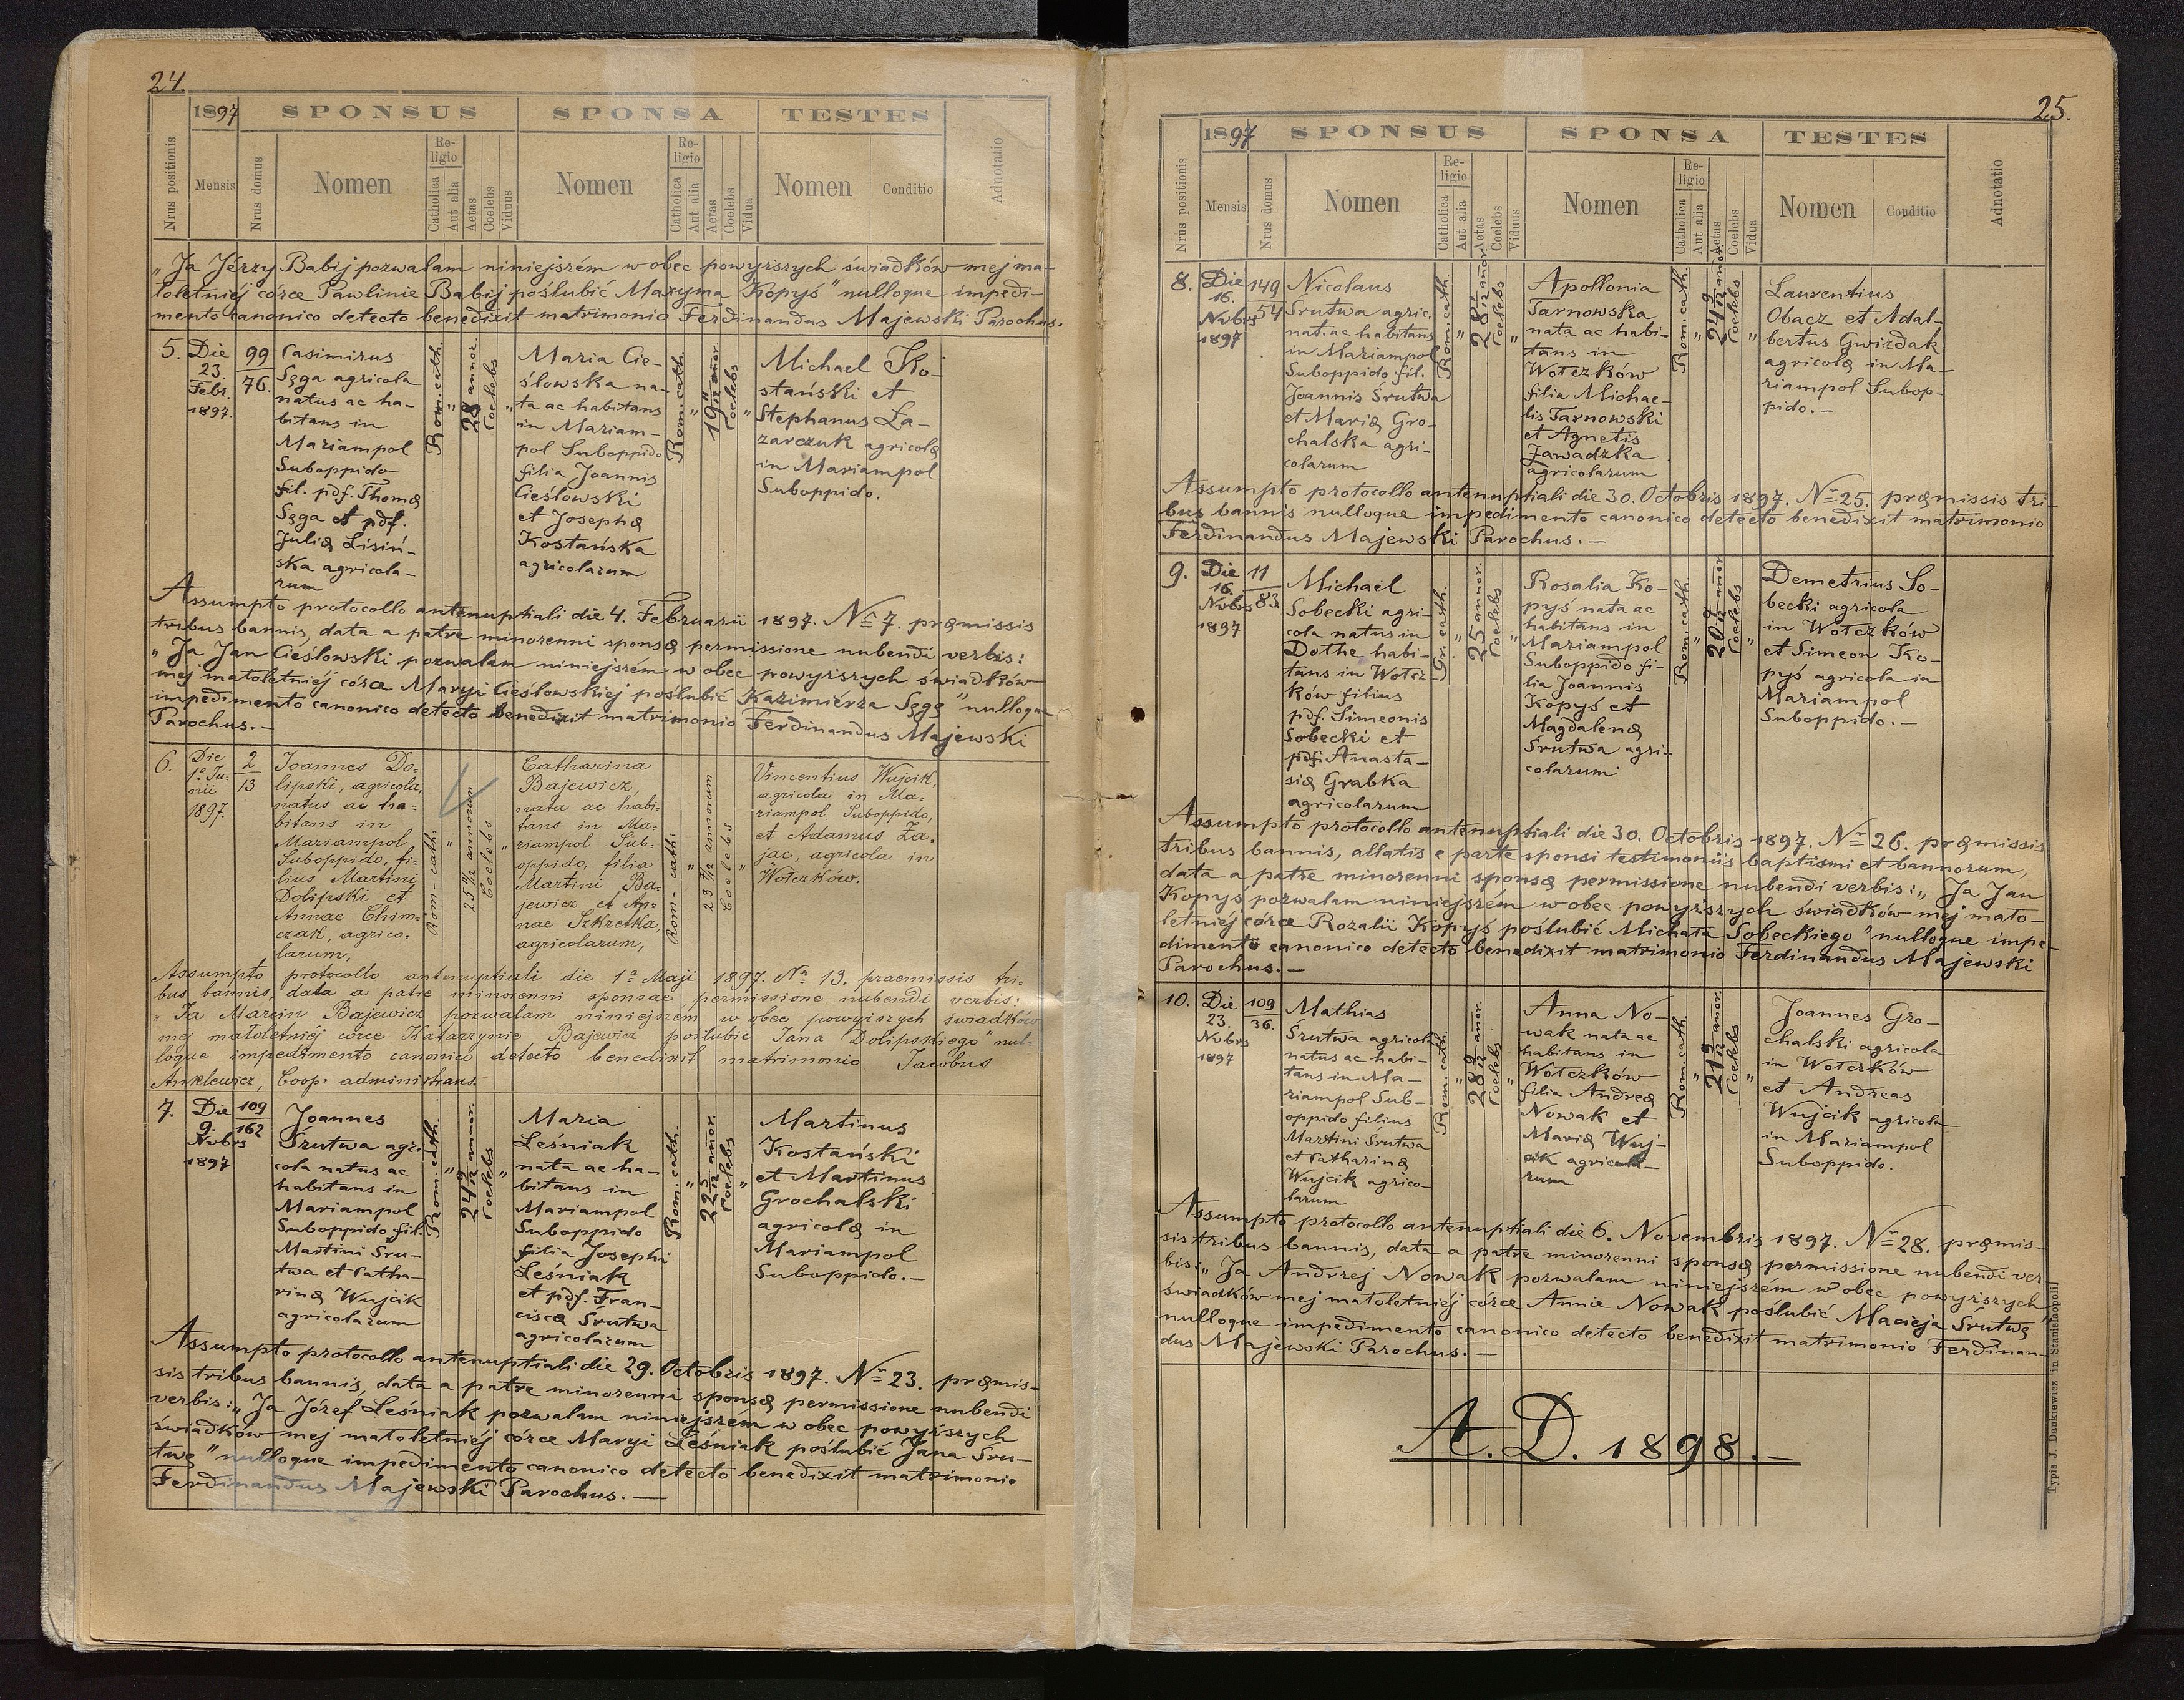 24.
1897 SPONSUS SPONSA TESTES
Nrus positionis
Mensis
Nrus domus
Nomen
Re-
ligio
Catholica
Aut alia
Aetas
Coelebs
Viduus
Nomen
Re-
ligio
Catholica
Aut alia
Aetas
Coelebs
Vidua
Nomen
Conditio
Adnotatio
„Ja Jérzy Babij pozwalam niniejszém w obec powyższych świadków mej ma-
łoletniéj córce Pawlinie Babij poślubić Maxyma Kopyś" nulloque impedi-
mento canonico detecto benedixit matrimonio Ferdinandus Majewski Parochus.
5.
Die
23.
Febr.
1897.
99
76.
Casimirus
Sęga agricola
natus ac ha-
bitans in
Mariampol
Suboppido
fil. pdf. Thomæ
Sęga et pdf.
Juliæ Lisiń-
ska agricola-
rum
Rom. cath.
"
28 annor.
Coelebs
"
Maria Cie-
ślowska na-
ta ac habitans
in Mariam-
pol Suboppido
filia Joannis
Cieślowski
et Josephæ
Kostańska
agricolarum
Rom. cath.
"
19 11/12 annor.
Coelebs
"
Michael Ko-
stański et
Stephanus Ła-
zarczuk agricolæ
in Mariampol
Suboppido.
Assumpto protocollo antenuptiali die 4. Februarii 1897. Nr 7. præmissis
tribus bannis, data a patre minorenni sponsæ permissione nubendi verbis:
„Ja Jan Cieślowski pozwalam niniejszém w obec powyższych świadków
mej małoletniéj córce Maryi Cieślowskiej poślubić Kazimiérza Sęgę" nulloque
impedimento canonico detecto benedixit matrimonio Ferdinandus Majewski
Parochus.—
6.
Die
1a Ju-
nii
1897.
2
13
Joannes Do-
lipski, agricola,
natus ac ha-
bitans in
Mariampol
Suboppido, fi-
lius Martini
Dolipski et
Annae Chim-
czak, agrico-
larum,
Rom-cath:
"
25 11/12 annorum
Coelebs
"
Catharina
Bajewicz,
nata ac habi-
tans in Ma-
riampol Sub-
oppido, filia
Martini Ba-
jewicz et An-
nae Szkretka,
agricolarum,
Rom-cath:
"
annorum
Coelebs
"
Vincentius Wujcik,
agricola in Ma-
riampol Suboppido,
et Adamus Za-
jac, agricola in
Wołczków.
Assumpto protocollo antenuptiali die 1a Maji 1897. Nr 13. praemissis tri-
bus bannis, data a patre minorenni sponsae permissione nubendi verbis:
„Ja Marcin Bajewicz pozwalam niniejszem w obec powyższych świadków
mej małoletniéj córce Katarzynie Bajewicz poślubić Jana Dolipskiego" nul-
loque impedimento canonico detecto benedixit matrimonio Jacobus
Anklewicz, Coop: administrans.
7.
Die
9.
Nvbrs
1897
109
162
Joannes
Śrutwa agri-
cola natus ac
habitans in
Mariampol
Suboppido, fil.
Martini Śru-
twa et Catha-
rinæ Wujcik
agricolarum
Rom. cath.
"
24 9/12 annor.
Coelebs
"
Maria
Leśniak
nata ac ha-
bitans in
Mariampol
Suboppido
filia Josephi
Leśniak
et pdf. Fran-
ciscæ Śrutwa
agricolarum
Rom. cath.
"
22 5/12 anor.
Coelebs
"
Martinus
Kostański
et Martinus
Grochalski
agricolæ in
Mariampol
Suboppido.—
Assumpto protocollo antenuptiali die 29. Octobris 1897. Nr 23. præmis-
sis tribus bannis, data a patre minorenni sponsæ permissione nubendi
verbis: „Ja Józef Leśniak pozwalam niniejszém w obec powyższych
świadków mej małoletniéj córce Maryi Leśniak poślubić Jana Śru-
twę" nulloque impedimento canonico detecto benedixit matrimonio
Ferdinandus Majewski Parochus.—
25.
1897 SPONSUS SPONSA TESTES
Nrus positionis
Mensis
Nrus domus
Nomen
Re-
ligio
Catholica
Aut alia
Aetas
Coelebs
Viduus
Nomen
Re-
ligio
Catholica
Aut alia
Aetas
Coelebs
Vidua
Nomen
Conditio
Adnotatio
8.
Die
16.
Nvbrs
1897
149
54
Nicolaus
Śrutwa agric.
nat. ac habitans
in Mariampol
Suboppido fil.
Joannis Śrutwa
et Mariæ Gro-
chalska agri-
colarum
Rom. cath.
"
28 11/12 anor.
Coelebs
"
Apollonia
Tarnowska
nata ac habi-
tans in
Wołczków
filia Michae-
lis Tarnowski
et Agnetis
Zawadzka
agricolarum
Rom. cath.
"
24 9/12 anor.
Coelebs
"
Laurentius
Obacz et Adal-
bertus Gwizdak
agricolæ in Ma-
riampol Subop-
pido.—
Assumpto protocollo antenuptiali die 30. Octobris 1897. Nr 25. præmissis tri-
bus bannis nulloque impedimento canonico detecto benedixit matrimonio
Ferdinandus Majewski Parochus.—
9.
Die
16.
Nvbrs
1897
11
83
Michael
Sobecki agri-
cola natus in
Dothe habi-
tans in Wołcz-
ków filius
pdf. Simeonis
Sobecki et
pdf. Anasta-
siæ Grabka
agricolarum
Gr. cath.
"
25 annor.
Coelebs
"
Rosalia Ko-
pyś nata ac
habitans in
Mariampol
Suboppido fi-
lia Joannis
Kopyś et
Magdalenæ
Śrutwa agri-
colarum
Rom. cath.
"
20 9/12 anor.
Coelebs
"
Demetrius So-
becki agricola
in Wołczków
et Simeon Ko-
pyś agricola in
Mariampol
Suboppido.—
Assumpto protocollo antenuptiali die 30. Octobris 1897. Nr 26. præmissis
tribus bannis, allatis e parte sponsi testimoniis baptismi et bannorum,
data a patre minorenni sponsæ permissione nubendi verbis: „Ja Jan
Kopyś pozwalam niniejszém w obec powyższych świadków mej mało-
letniéj córce Rozalii Kopyś poślubić Michała Sobeckiego" nulloque impe-
dimento canonico detecto benedixit matrimonio Ferdinandus Majewski
Parochus.—
10.
Die
23.
Nvbrs
1897
109
36.
Mathias
Śrutwa agricola
natus ac habi-
tans in Ma-
riampol Sub-
oppido filius
Martini Śrutwa
et Catharinæ
Wujcik agrico-
larum
Rom. cath.
"
28 9/12 annor.
Coelebs
"
Anna No-
wak nata ac
habitans in
Wołczków
filia Andreæ
Nowak et
Mariæ Wuj-
cik agricola-
rum
Rom. cath.
"
21 9/12 anor.
Coelebs
"
Joannes Gro-
chalski agricola
in Wołczków
et Andreas
Wujcik agricola
in Mariampol
Suboppido.
Assumpto protocollo antenuptiali die 6. Novembris 1897. Nr 28. præmis-
sis tribus bannis, data a patre minorenni sponsæ permissione nubendi ver
bis: „Ja Andrzej Nowak pozwalam niniejszém w obec powyższych
świadków mej małoletniéj córce Annie Nowak poślubić Macieja Śrutwę"
nulloque impedimento canonico detecto benedixit matrimonio Ferdinan-
dus Majewski Parochus.—
A. D. 1898.—
Typis J. Dankiewicz in Stanislopoli